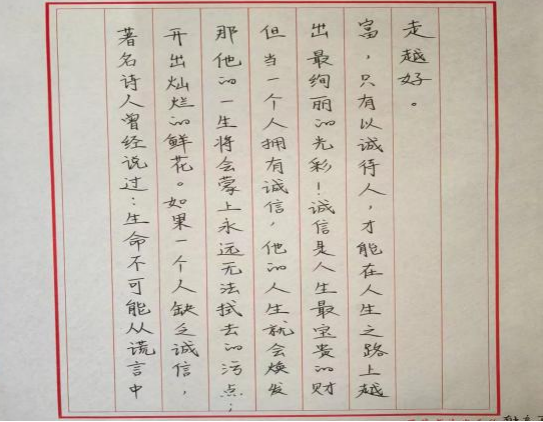 著名诗人曾经说过：生命不可能从谎言中
开出灿烂的鲜花。如果一个人缺乏诚信，
那他的一生将会蒙上永远无法拭去的污点；
但当一个人拥有诚信，他的人生就会焕发
出最绚丽的光彩！诚信是人生最宝贵的财
富，只有以诚待人，才能在人生之路上越
走越好。